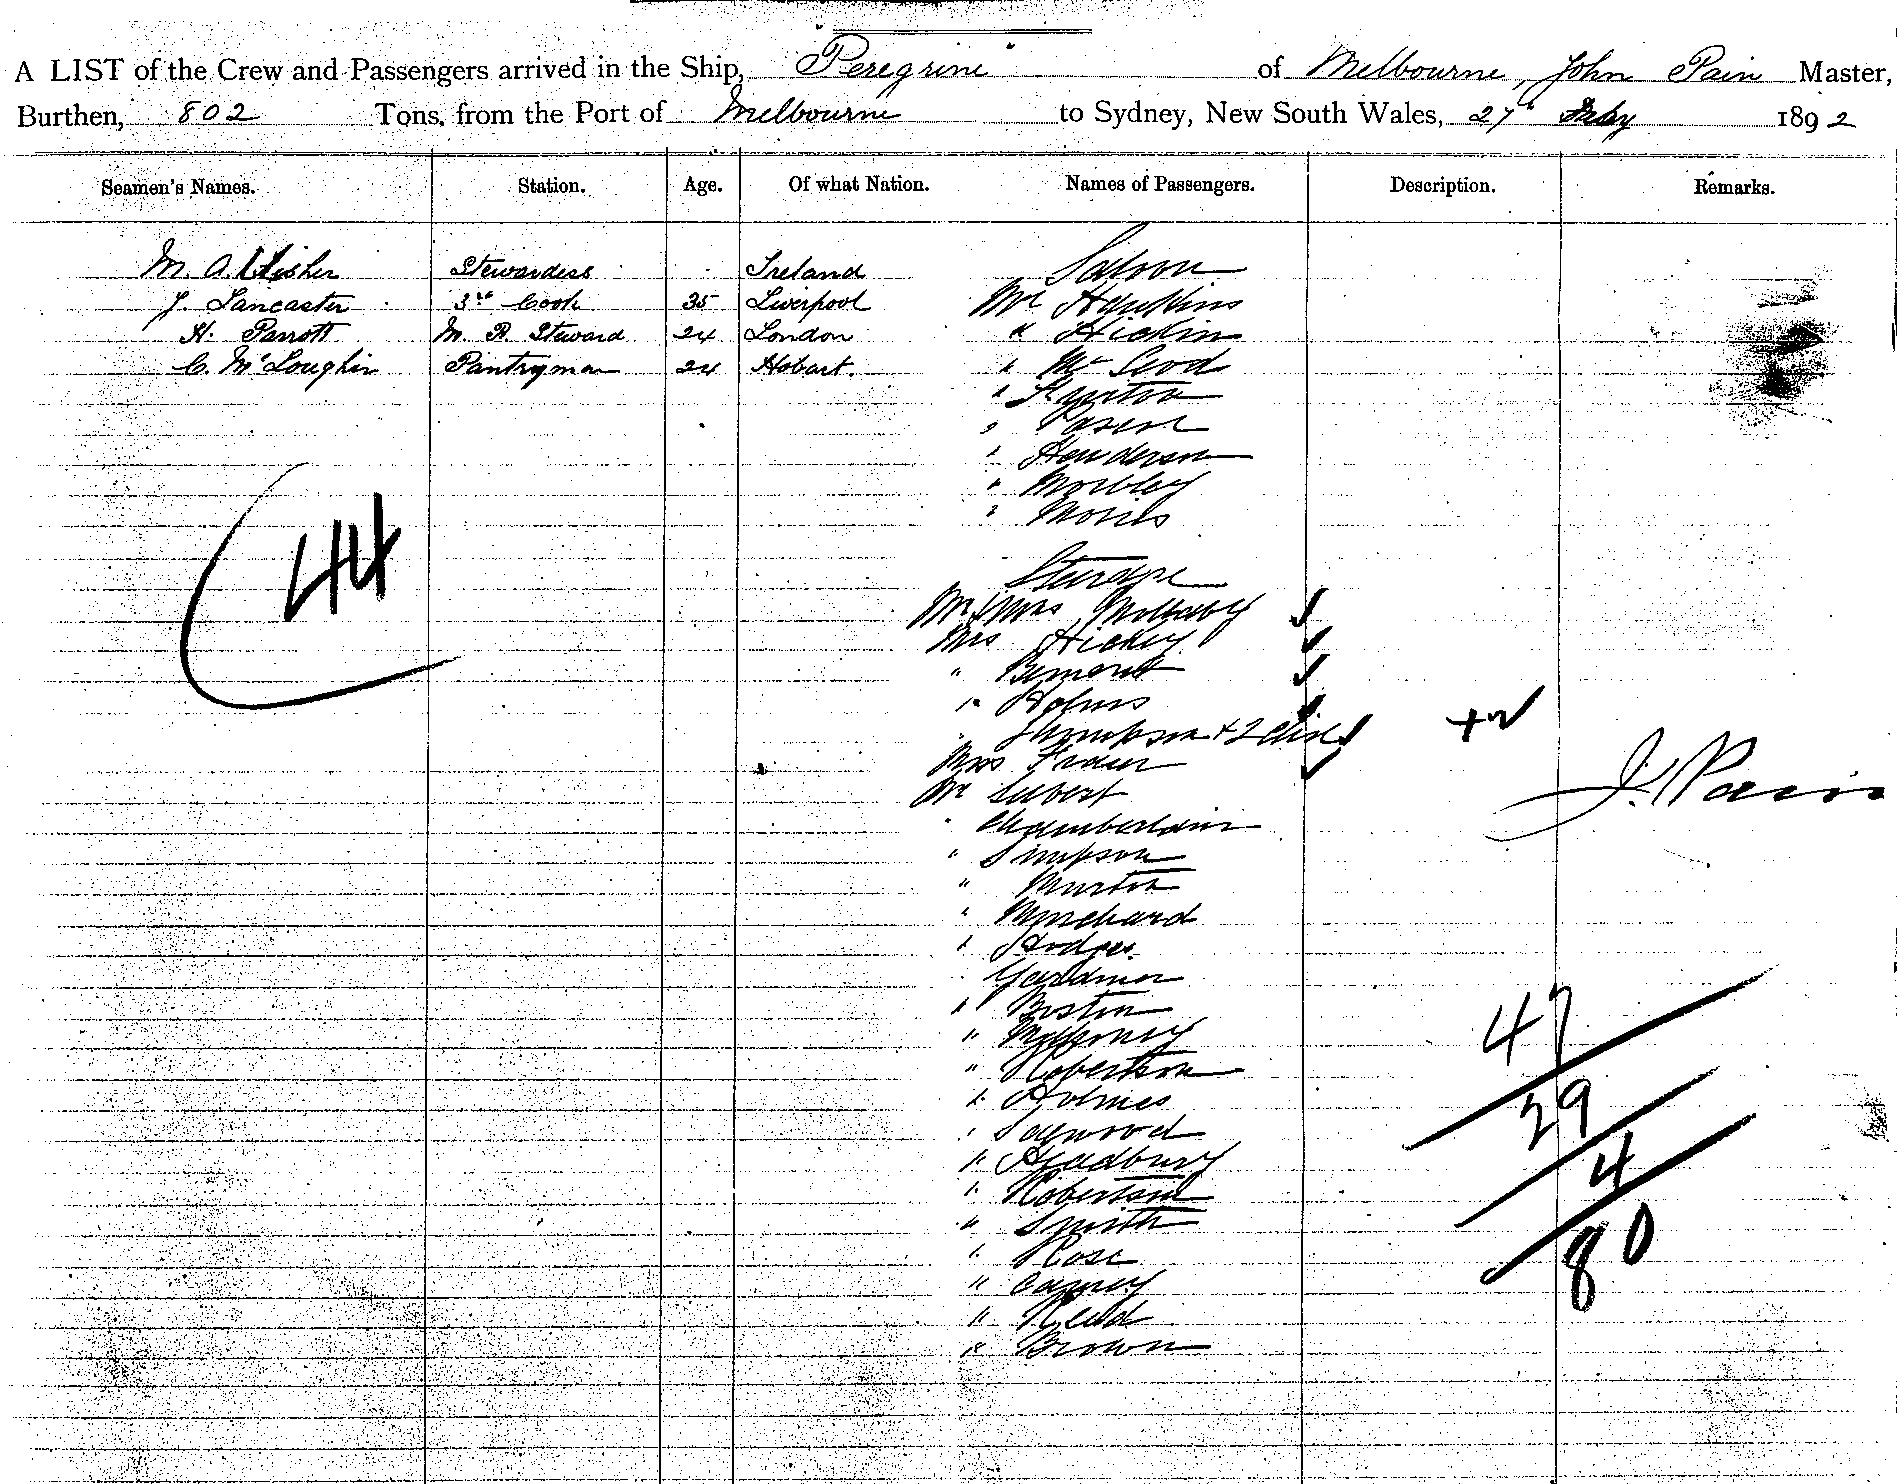 A LIST of the Crew and Passengers arrived in the Ship, Peregrine of Melbourne, John Pain Master,
Burthen, 802 Tons. from the Port of Melbourne to Sydney, New South Wales, 27th Feby 1892
Seamen's Names. Station. Age. Of what Nation. Names of Passengers. Description. Remarks.
Saloon
M. A. Stewardess Ireland
J. Lancaster 3rd Cook 35 Liverpool Mr Hawkins
H. Parrott M. R. Steward 24 London " Hickin
C. McLoughlin Pantryman 24 Hobart. " McLeod
" Kynton
"
" Henderson
" Morbley
" Morris
44
Steerage
Mr & Mrs
Mrs Hickey
"
" Holms
Thompson + 2 chil
+2
Mrs Fraser
J. Pain
Mr
" Chamberlain
" Simpson
" Murton
"
" Hodges.
Gardiner
" Bostin
" Mahoney
" Robertson
47
" Holmes
29
"
" Headbury
4
" Robertson
" Smith
80
" Rose
" Carney
" Reid
" Brown